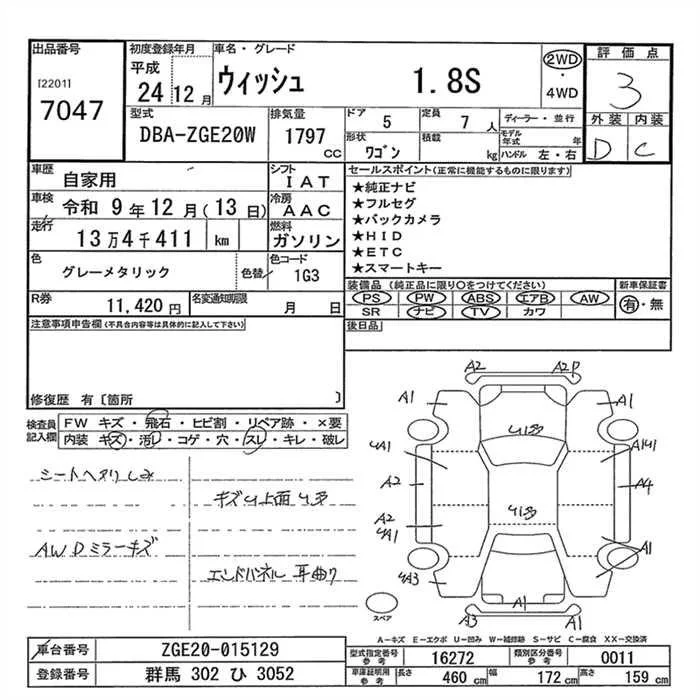 出品番号
[2201]
7047
初度登録年月
平成
24 12 月
車名・グレード
ウィッシュ 1.8S
2WD
・
4WD
評価点
3
外装 内装
D C
型式
DBA-ZGE20W
排気量
1797
cc
ドア 5
定員 7 人
形状 ワゴン
積載 kg
ディーラー・並行
モデル年式 年
ハンドル 左・右
車歴 自家用
シフト IAT
車検 令和 9 年 12 月(13 日)
冷房 AAC
走行 13万4千411 km
燃料 ガソリン
色 グレーメタリック
色替
色コード 1G3
R券 11,420 円
名変通知期限 月 日
セールスポイント(正常に機能するものに限ります)
★純正ナビ
★フルセグ
★バックカメラ
★HID
★ETC
★スマートキー
装備品(純正品に限り○をつけてください)
PS PW ABS エアB AW
SR ナビ TV カワ
新車保証書
有・無
後日品
注意事項申告欄(不具合内容等は具体的に記入して下さい)
修復歴 有〔箇所 〕
検査員
記入欄
FW キズ・飛石・ヒビ割・リペア跡・×要
内装 キズ・汚レ・コゲ・穴・スレ・キレ・破レ
シートヘタリしみ
キズ上面
AWDミラーキズ
エンドパネル 耳曲り
A2 A2P
A1 A1
A2 A4
A2 A1
A3 A1 A3
スペア
A-キズ E-エクボ U-凹み W-補修跡 S-サビ C-腐食 XX-交換済
車台番号 ZGE20-015129
登録番号 群馬 302 ひ 3052
型式指定番号 参考 16272
類別区分番号 参考 0011
車庫証明用 参考 長さ 460 cm 幅 172 cm 高さ 159 cm